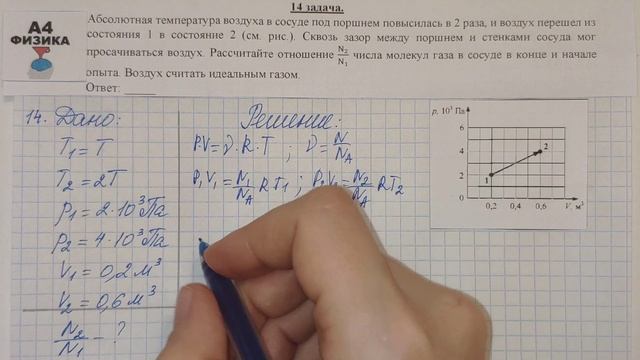 14 задача.
А4
ФИЗИКА
Абсолютная температура воздуха в сосуде под поршнем повысилась в 2 раза, и воздух перешел из
состояния 1 в состояние 2 (см. рис.). Сквозь зазор между поршнем и стенками сосуда мог
просачиваться воздух. Рассчитайте отношение N₂/N₁ числа молекул газа в сосуде в конце и начале
опыта. Воздух считать идеальным газом.
Ответ: _____
14. Дано:
T₁ = T
T₂ = 2T
p₁ = 2·10³ Па
p₂ = 4·10³ Па
V₁ = 0,2 м³
V₂ = 0,6 м³
N₂/N₁ - ?
Решение:
P·V = ν·R·T ; ν = N/N_A
P₁V₁ = N₁/N_A RT₁ ; P₂V₂ = N₂/N_A RT₂
p, 10³ Па
6
4
2
0
1
2
0,2 0,4 0,6 V, м³